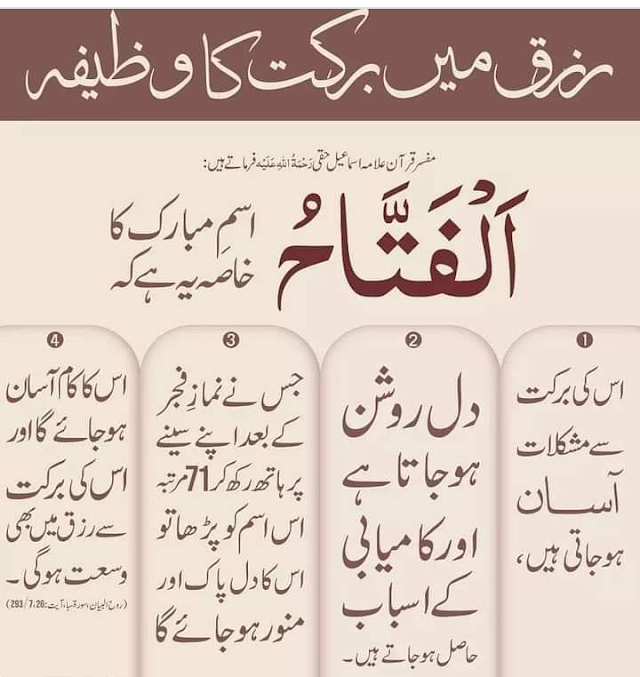 رزق میں برکت کا وظیفہ
مفسر قرآن علامہ اسماعیل حقی رَحْمَۃُ اللہِ عَلَیْہ فرماتے ہیں:
اَلْفَتَّاحُ
اسمِ مبارک کا
خاصہ یہ ہے کہ
1
اس کی برکت
سے مشکلات
آسان
ہو جاتی ہیں،
2
دل روشن
ہو جاتا ہے
اور کامیابی
کے اسباب
حاصل ہو جاتے ہیں۔
3
جس نے نمازِ فجر
کے بعد اپنے سینے
پر ہاتھ رکھ کر 71 مرتبہ
اس اسم کو پڑھا تو
اس کا دل پاک اور
منور ہو جائے گا
4
اس کا کام آسان
ہو جائے گا اور
اس کی برکت
سے رزق میں بھی
وسعت ہوگی۔
(روح البیان، سورۃ سبا، آیت:26، 7/293)